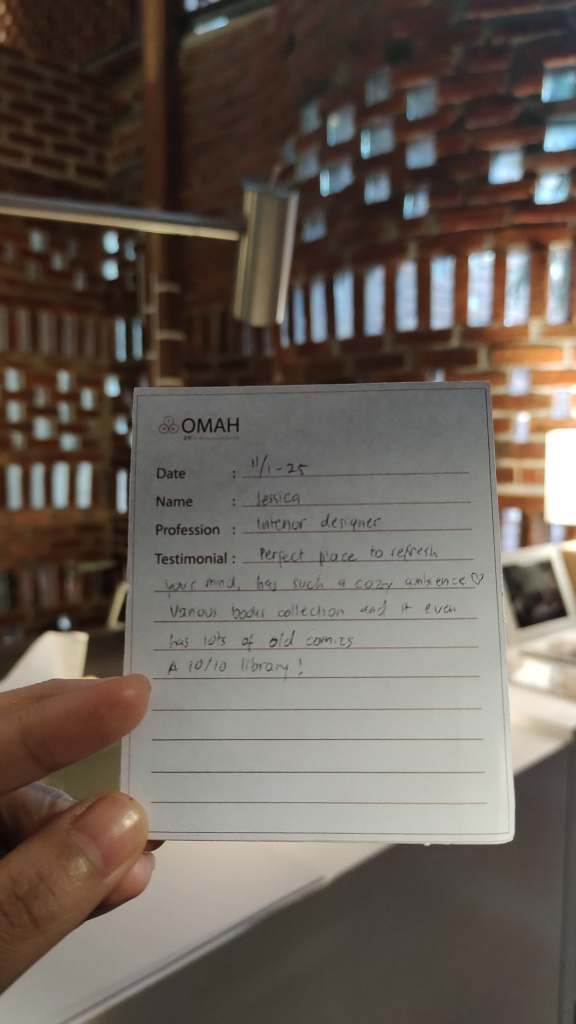 OMAH
Date : 11/1-25
Name : Jessica
Profession : Interior designer
Testimonial : Perfect place to refresh
your mind, has such a cozy ambience ♡
Various books collection and it even
has lots of old comics
A 10/10 library!